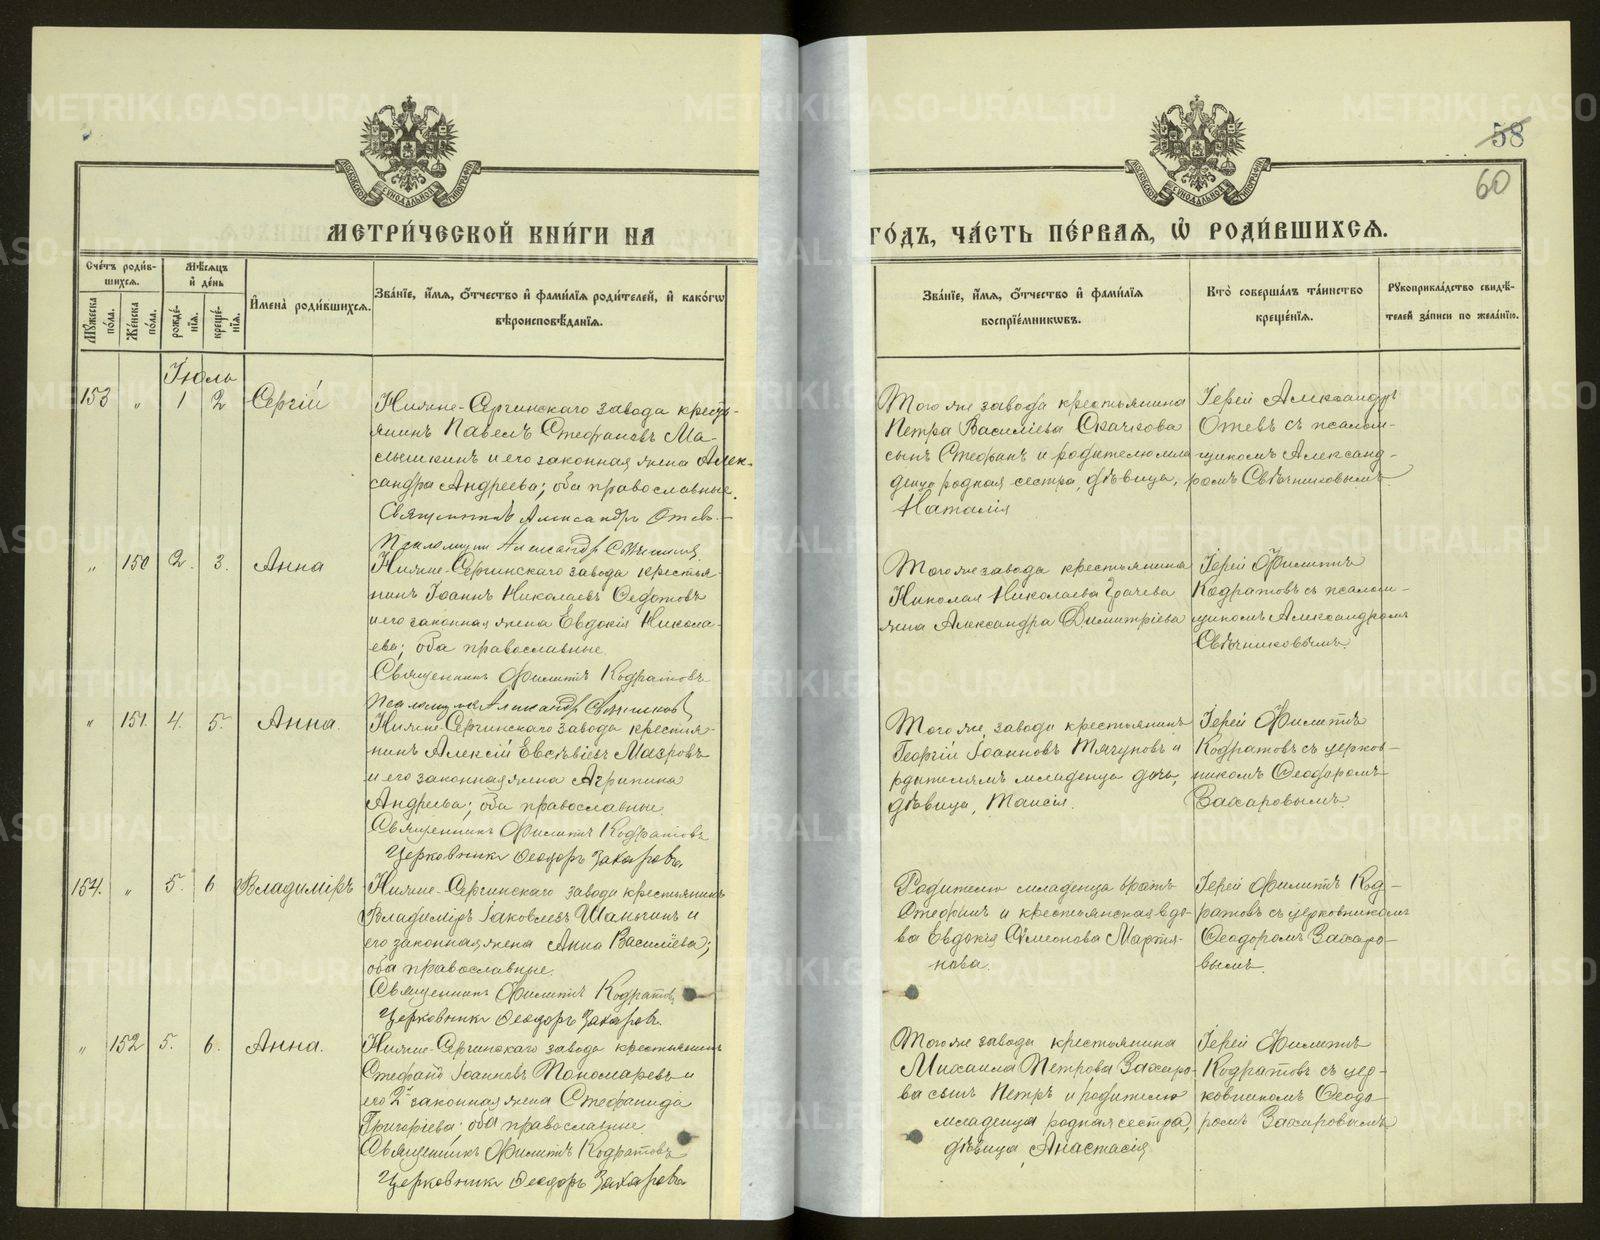 58
60
МЕТРИ́ЧЕСКОЙ КНИ́ГИ НА
ГО́ДЪ, ЧА́СТЬ ПЕ́РВАЯ, Ѡ҆ РОДИ́ВШИХСѦ.
Сче́тъ роди́в-
шихсѧ.
Мꙋжеска по́ла.
Же́нска по́ла.
Мѣ́сѧцъ и҆ де́нь
рожде́нїѧ.
креще́нїѧ.
И҆мена̀ роди́вшихсѧ.
Зва́нїе, и҆́мѧ, ѻ҆́тчество и҆ фами́лїѧ роди́телей, и҆ како́гѡ
вѣроисповѣ́данїѧ.
Зва́нїе, и҆́мѧ, ѻ҆́тчество и҆ фами́лїѧ
воспрїе́мникѡвъ.
Кто̀ соверша́лъ та́инство
креще́нїѧ.
Рꙋкоприкла́дство свидѣ́-
телей за́писи по жела́нїю.
Іюль
153 " 1 2 Сергій
Нижне-Сергинскаго завода кресть-
янинъ Павелъ Стефановъ Ма-
слышкинъ и его законная жена Алек-
сандра Андреева; оба православные.
Священникъ Александръ Отевъ
Псаломщик Александр Свѣчников
Того же завода крестьянина
Петра Василіева Скачкова
сынъ Стефанъ и родителю мла
денца родная сестра, дѣвица,
Наталія
Іерей Александръ
Отевъ съ псалом-
щикомъ Александ-
ромъ Свѣчниковымъ.
" 150 2. 3. Анна
Нижне-Сергинскаго завода крестья-
нинъ Іоаннъ Николаевъ Федотовъ
и его законная жена Евдокія Никола-
ева; оба православные.
Священникъ Филиппъ Кодратовъ
Псаломщик Александр Свѣчников
Того же завода крестьянина
Николая Николаева Грачева
жена Александра Димитріева
Іерей Филиппъ
Кодратовъ съ псалом-
щикомъ Александромъ
Свѣчниковымъ.
" 151. 4. 5. Анна.
Нижне-Сергинскаго завода крестья-
нинъ Алексій Евсевіевъ Мазровъ
и его законная жена Агрипина
Андреева; оба православные.
Священникъ Филиппъ Кодратовъ
Церковникъ Ѳеодоръ Захаровъ
Того же завода крестьянинъ
Георгій Іоанновъ Тягуновъ и
родителямъ младенца дочь,
дѣвица, Таисія.
Іерей Филиппъ
Кодратовъ съ церков-
никомъ Ѳеодоромъ
Захаровымъ.
154. " 5. 6 Владиміръ
Нижне-Сергинскаго завода крестьянинъ
Владиміръ Іаковлевъ Шаныгинъ и
его законная жена Анна Василіева;
оба православные.
Священникъ Филиппъ Кодратовъ
Церковникъ Ѳеодоръ Захаровъ.
Родителю младенца братъ
Стефанъ и крестьянская вдо-
ва Евдокія Симеонова Мартья-
нова.
Іерей Филиппъ Код-
ратовъ съ церковникомъ
Ѳеодоромъ Захаро-
вымъ.
" 152 5. 6. Анна.
Нижне-Сергинскаго завода крестьянинъ
Стефанъ Іоанновъ Пономаревъ и
его 2я законная жена Стефанида
Григоріева; оба православные.
Священникъ Филиппъ Кодратовъ
Церковникъ Ѳеодоръ Захаровъ
Того же завода крестьянина
Михаила Петрова Захаро-
ва сынъ Петръ и родителю
младенца родная сестра,
дѣвица, Анастасія
Іерей Филиппъ
Кодратовъ съ цер-
ковникомъ Ѳеодо-
ромъ Захаровымъ
METRIKI.GASO-URAL.RU